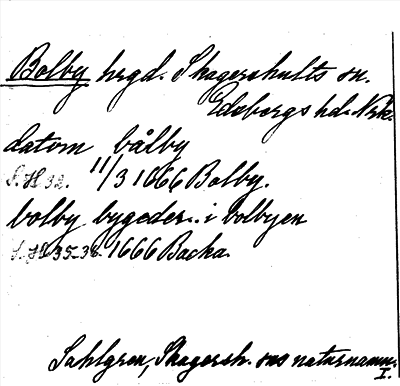 Bolby hrgd. Skagershults sn.
Edsbergs hd. Nrk.
datom bålby
S. H 32. 11/3 1666 Bolby.
bolby bygeder.. i bolbyen
S. H 35-36. 1666 Backa.
Sahlgren, Skagersh. sns naturnamn.
I.